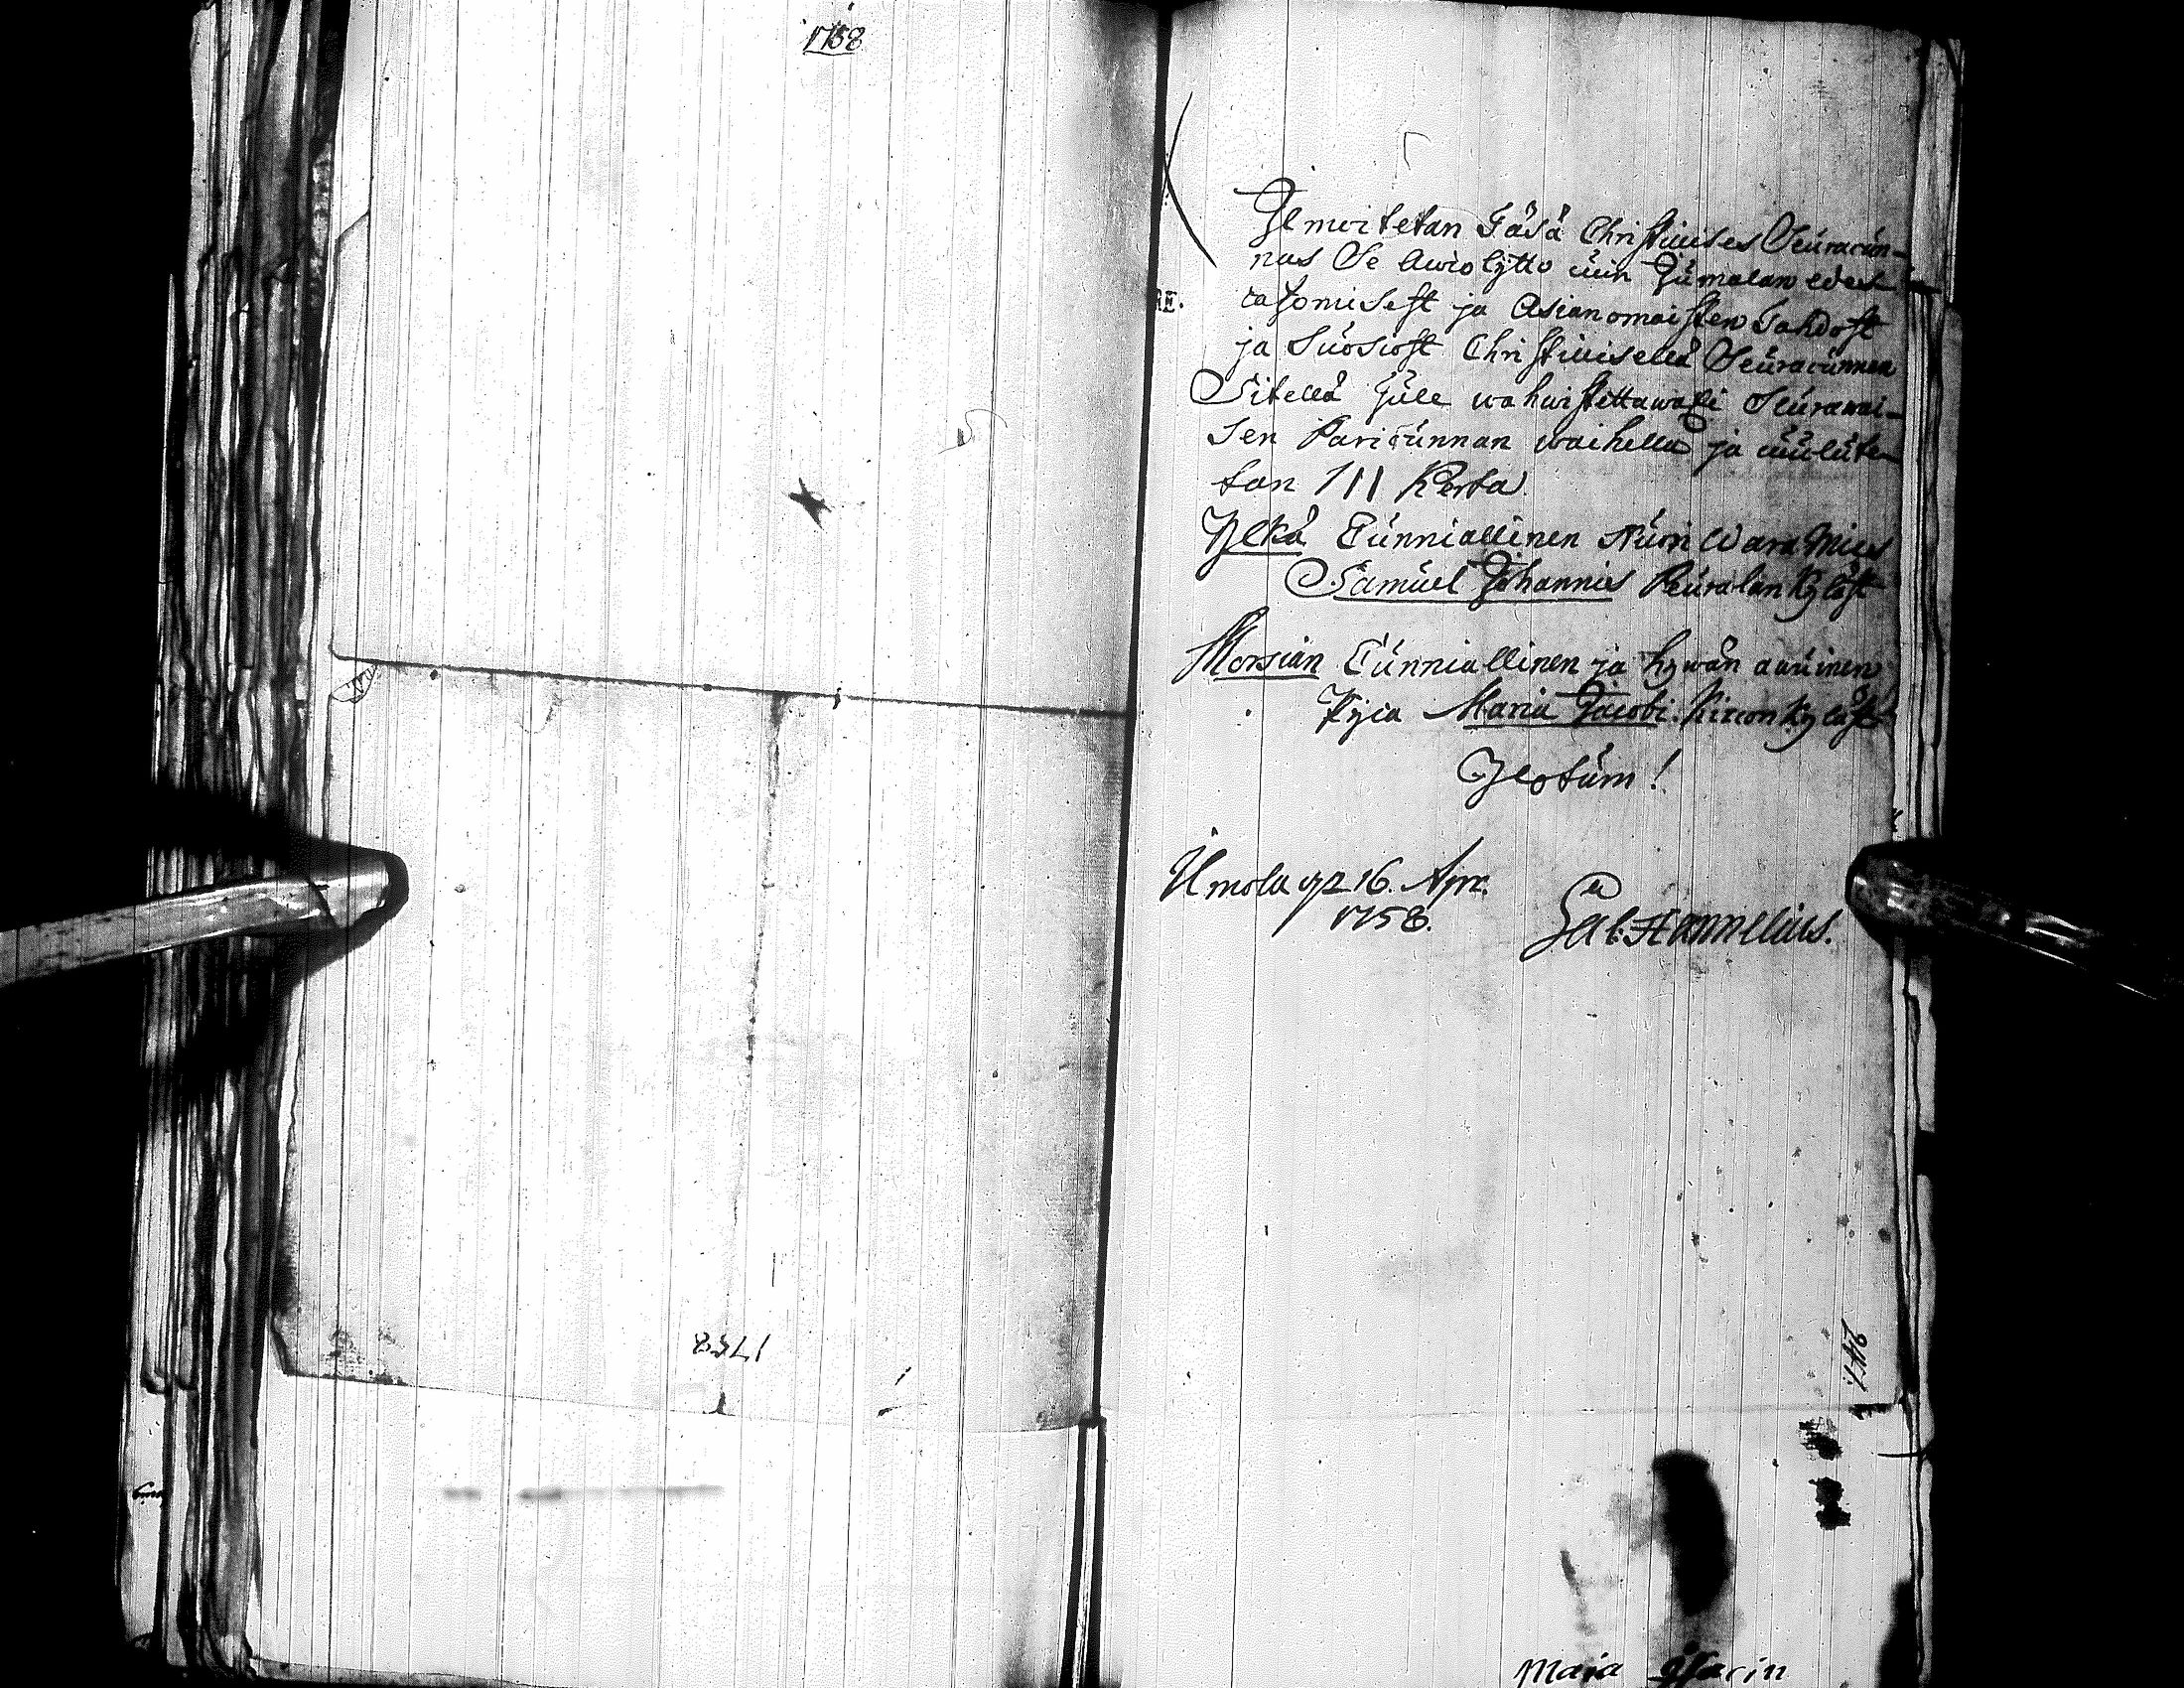 1758
Ilmoitetan Täsä Christillises Seuracun-
nas Se Awiokytto cuin Jumalan edes
cazomisest ja Asianomaisten Tahdost
ja Suosiost Christillisellä Seuracunnan
Sitellä julle wahwistettawaxi Seurawai-
sen Paricunnan waihella ja cuulute-
tan III Kerta
Ylkä Cunniallinen Nuori Wara Mies
Samuel Johannis Peuralan Kyläst
Morsian Cunniallinen ja hywän aauinen
Pijca Maria Jacobi Kircon Kyläst
Ilotum!
Uˈmola 16. Apr.
1758.
Gab: Hannelius.
1758
RE.
247.
Maia